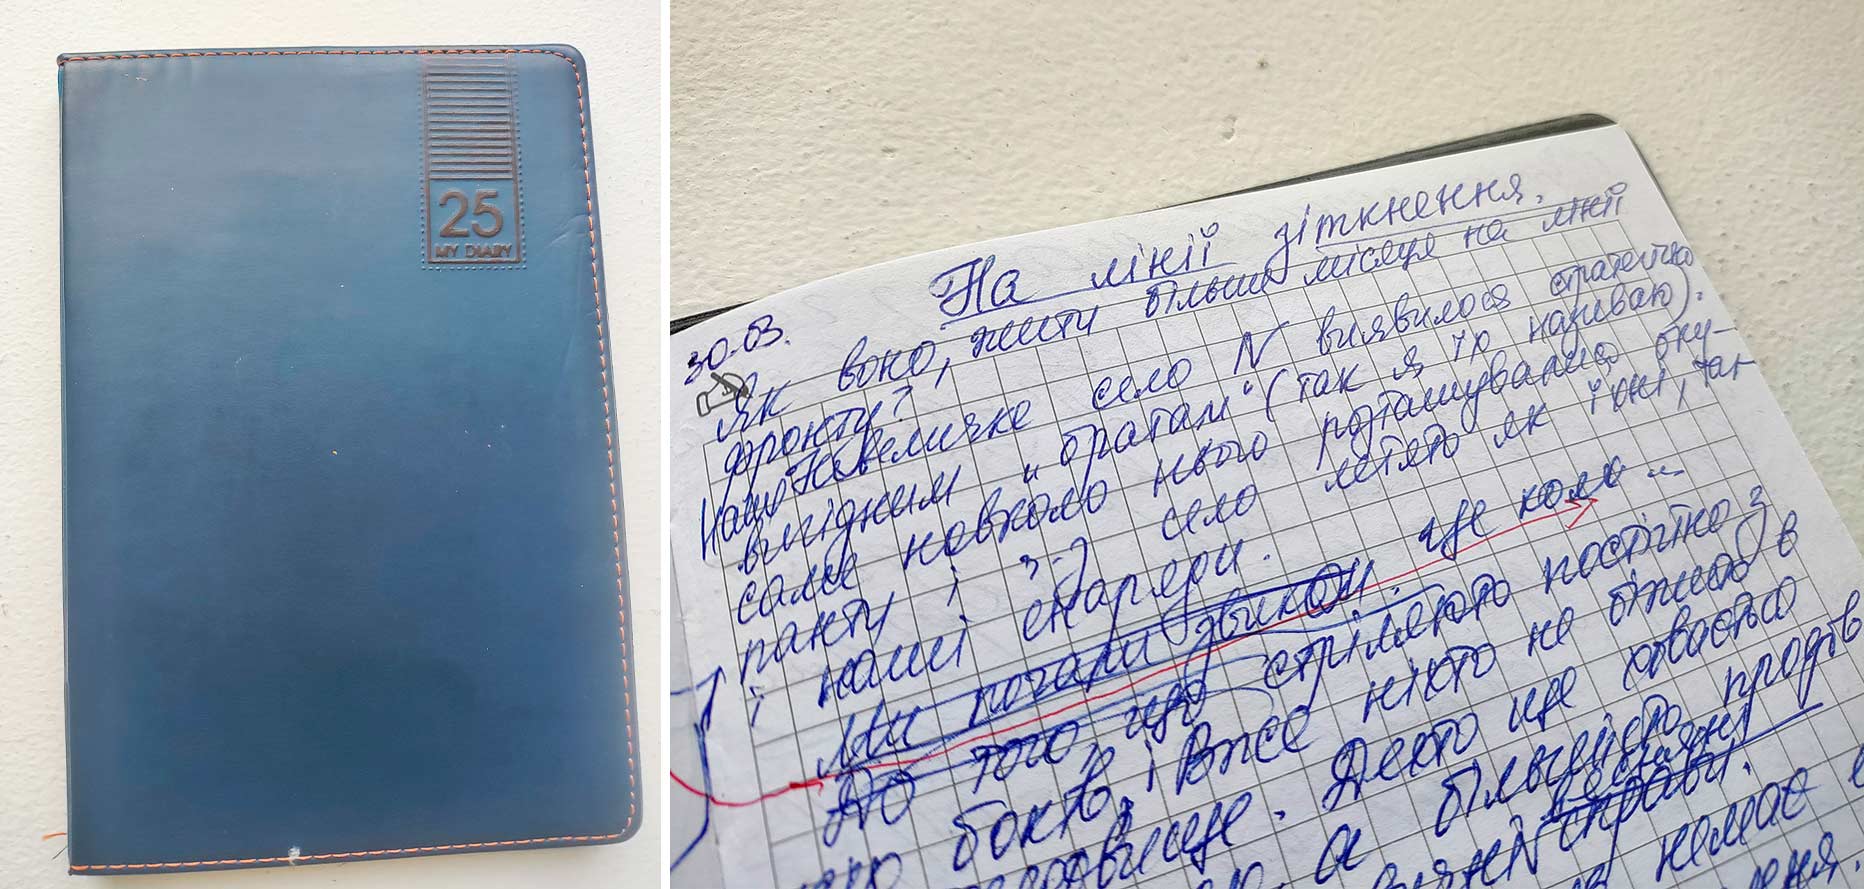 25
MY DIARY
На лінії зіткнення.
30.03.
Як воно, жити більше місяця на лінії
фронту?
Наше невеличке село N виявилося стратегічно
вигідним „братам“ (так я їх називаю).
саме навколо нього розташувалися оку-
панти і з-за село летять як їхні, так
і наші снаряди.
Ми почали звикати. ще коли ...
До того, що стріляють постійно з
боків, і вже ніхто не біжить в
Дехто ще ховається
а більшість
весняні
справи.
немає